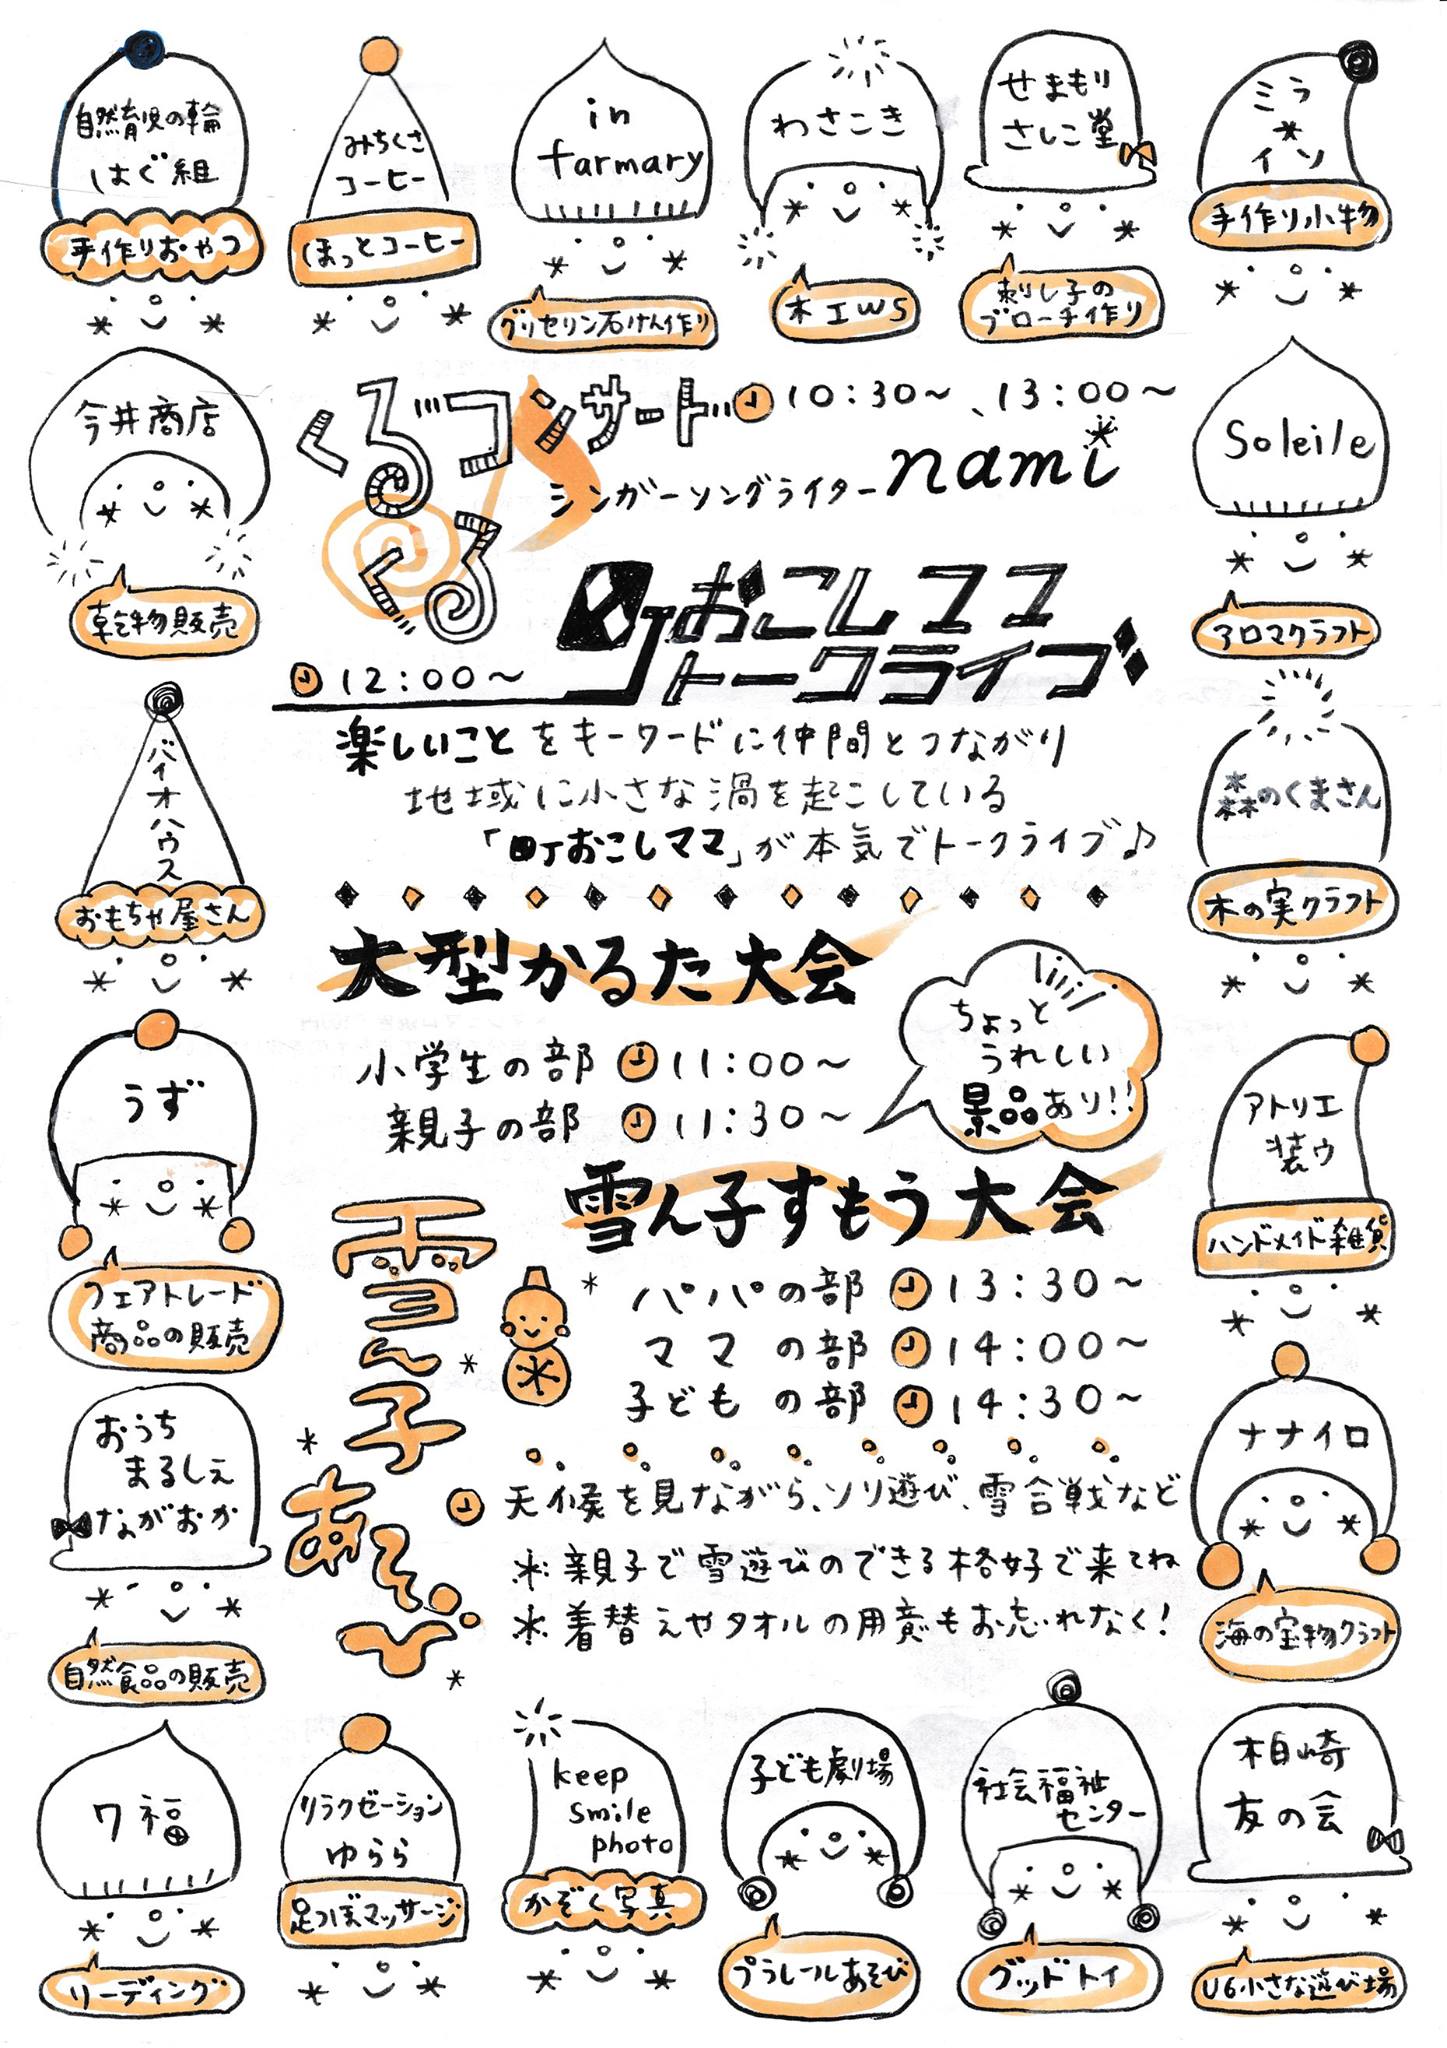 自然育児の輪
はぐ組
手作りおやつ
みちくさ
コーヒー
ほっとコーヒー
in
farmary
グリセリン石けん作り
わさこき
木工WS
せまもり
さしこ堂
刺し子の
ブローチ作り
ミラ
*
イソ
手作り小物
今井商店
乾物販売
ぐるぐるコンサート 10:30〜、13:00〜
シンガーソングライター nami
Soleile
アロマクラフト
町おこしママ
トークライブ
12:00〜
楽しいことをキーワードに仲間とつながり
地域に小さな渦を起こしている
「町おこしママ」が本気でトークライブ♪
バイオハウス
おもちゃ屋さん
森のくまさん
木の実クラフト
大型かるた大会
小学生の部 11:00〜
親子の部 11:30〜
ちょっと
うれしい
景品あり!!
うず
フェアトレード
商品の販売
アトリエ
装ウ
ハンドメイド雑貨
雪ん子すもう大会
パパの部 13:30〜
ママの部 14:00〜
子どもの部 14:30〜
雪ん子
あそび
天候を見ながら、ソリ遊び、雪合戦など
※親子で雪遊びのできる格好で来てね
※着替えやタオルの用意もお忘れなく!
おうち
まるしぇ
ながおか
自然食品の販売
ナナイロ
海の宝物クラフト
ワ福
リーディング
リラクゼーション
ゆらら
足つぼマッサージ
keep
smile
photo
かぞく写真
子ども劇場
プラレールあそび
社会福祉
センター
グッドトイ
柏崎
友の会
U6小さな遊び場